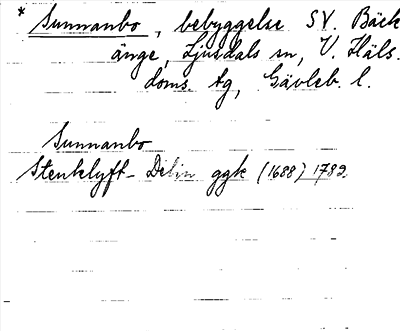 * Sunnanbo, bebyggelse SV. Bäck
änge, Ljusdals sn, V. Häls.
doms. tg, Gävleb. l.
Sunnanbo
Stenklyft- Delin ggk (1688) 1782